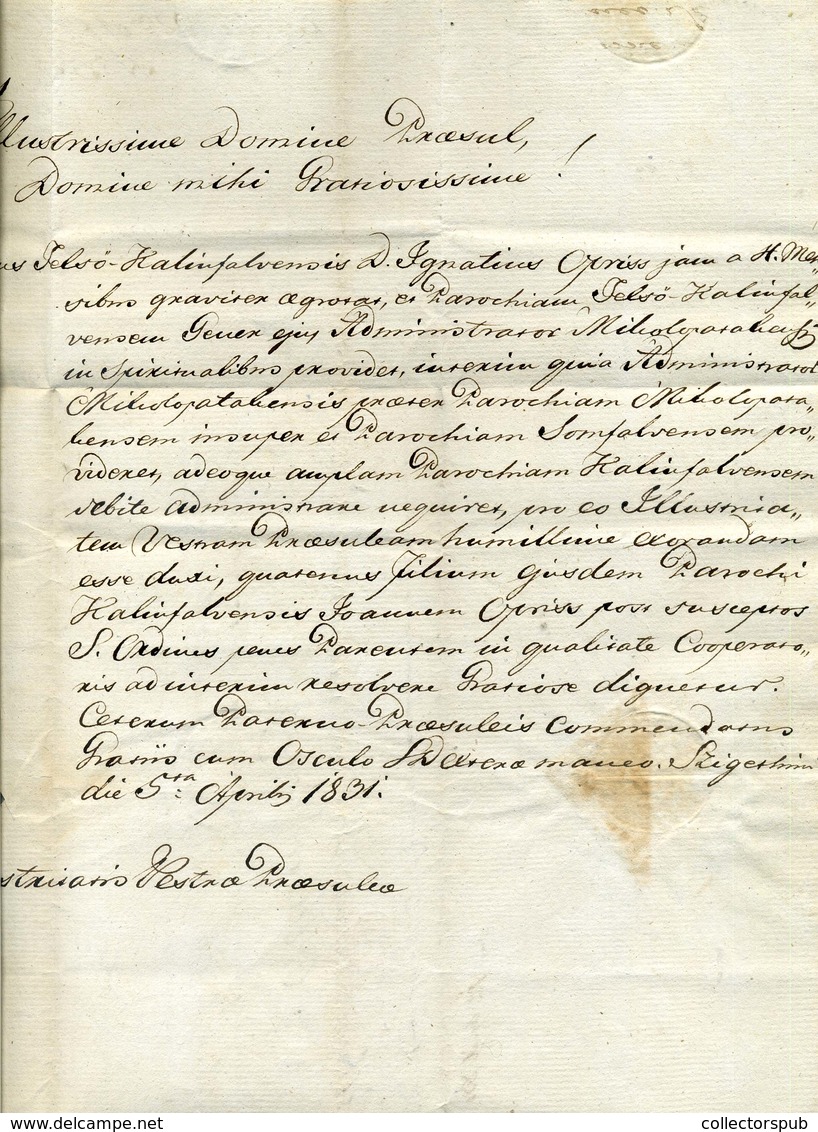 llustrissime Domine Præsul,
Domine mihi Gratiosissime!
us Felsö-Kalinfalvensis D. Ignatius Opriss jam a 4. Men„
sibus graviter ægrotat, et Parochiam Felsö-Kalinfal„
vensem Gener ejus Administrator Mikolapatakensis
in Spiritualibus providet, interim quia Administrator
Mikolapatakensis præter Parochiam Mikolapata„
kensem insuper et Parochiam Somfalvensem pro„
videret, adeoque amplam Parochiam Kalinfalvensem
debite administrare nequiret, pro eo Illustrita„
tem Vestram Præsuleam humillime exorandam
esse duxi, quatenus filium ejusdem Parochi
Kalinfalvensis Joannem Opriss post susceptos
S. Ordines penes Parentem in qualitate Cooperato„
ris ad interim resolvere Gratiose dignetur.
Ceterum Paterno-Præsuleis commendatus
Gratiis cum Osculo S. Dexteræ maneo. Szigethini
die 5ta Aprilis 1831.
stritatis Vestræ Præsuleæ
www.delcampe.net
collectorspub